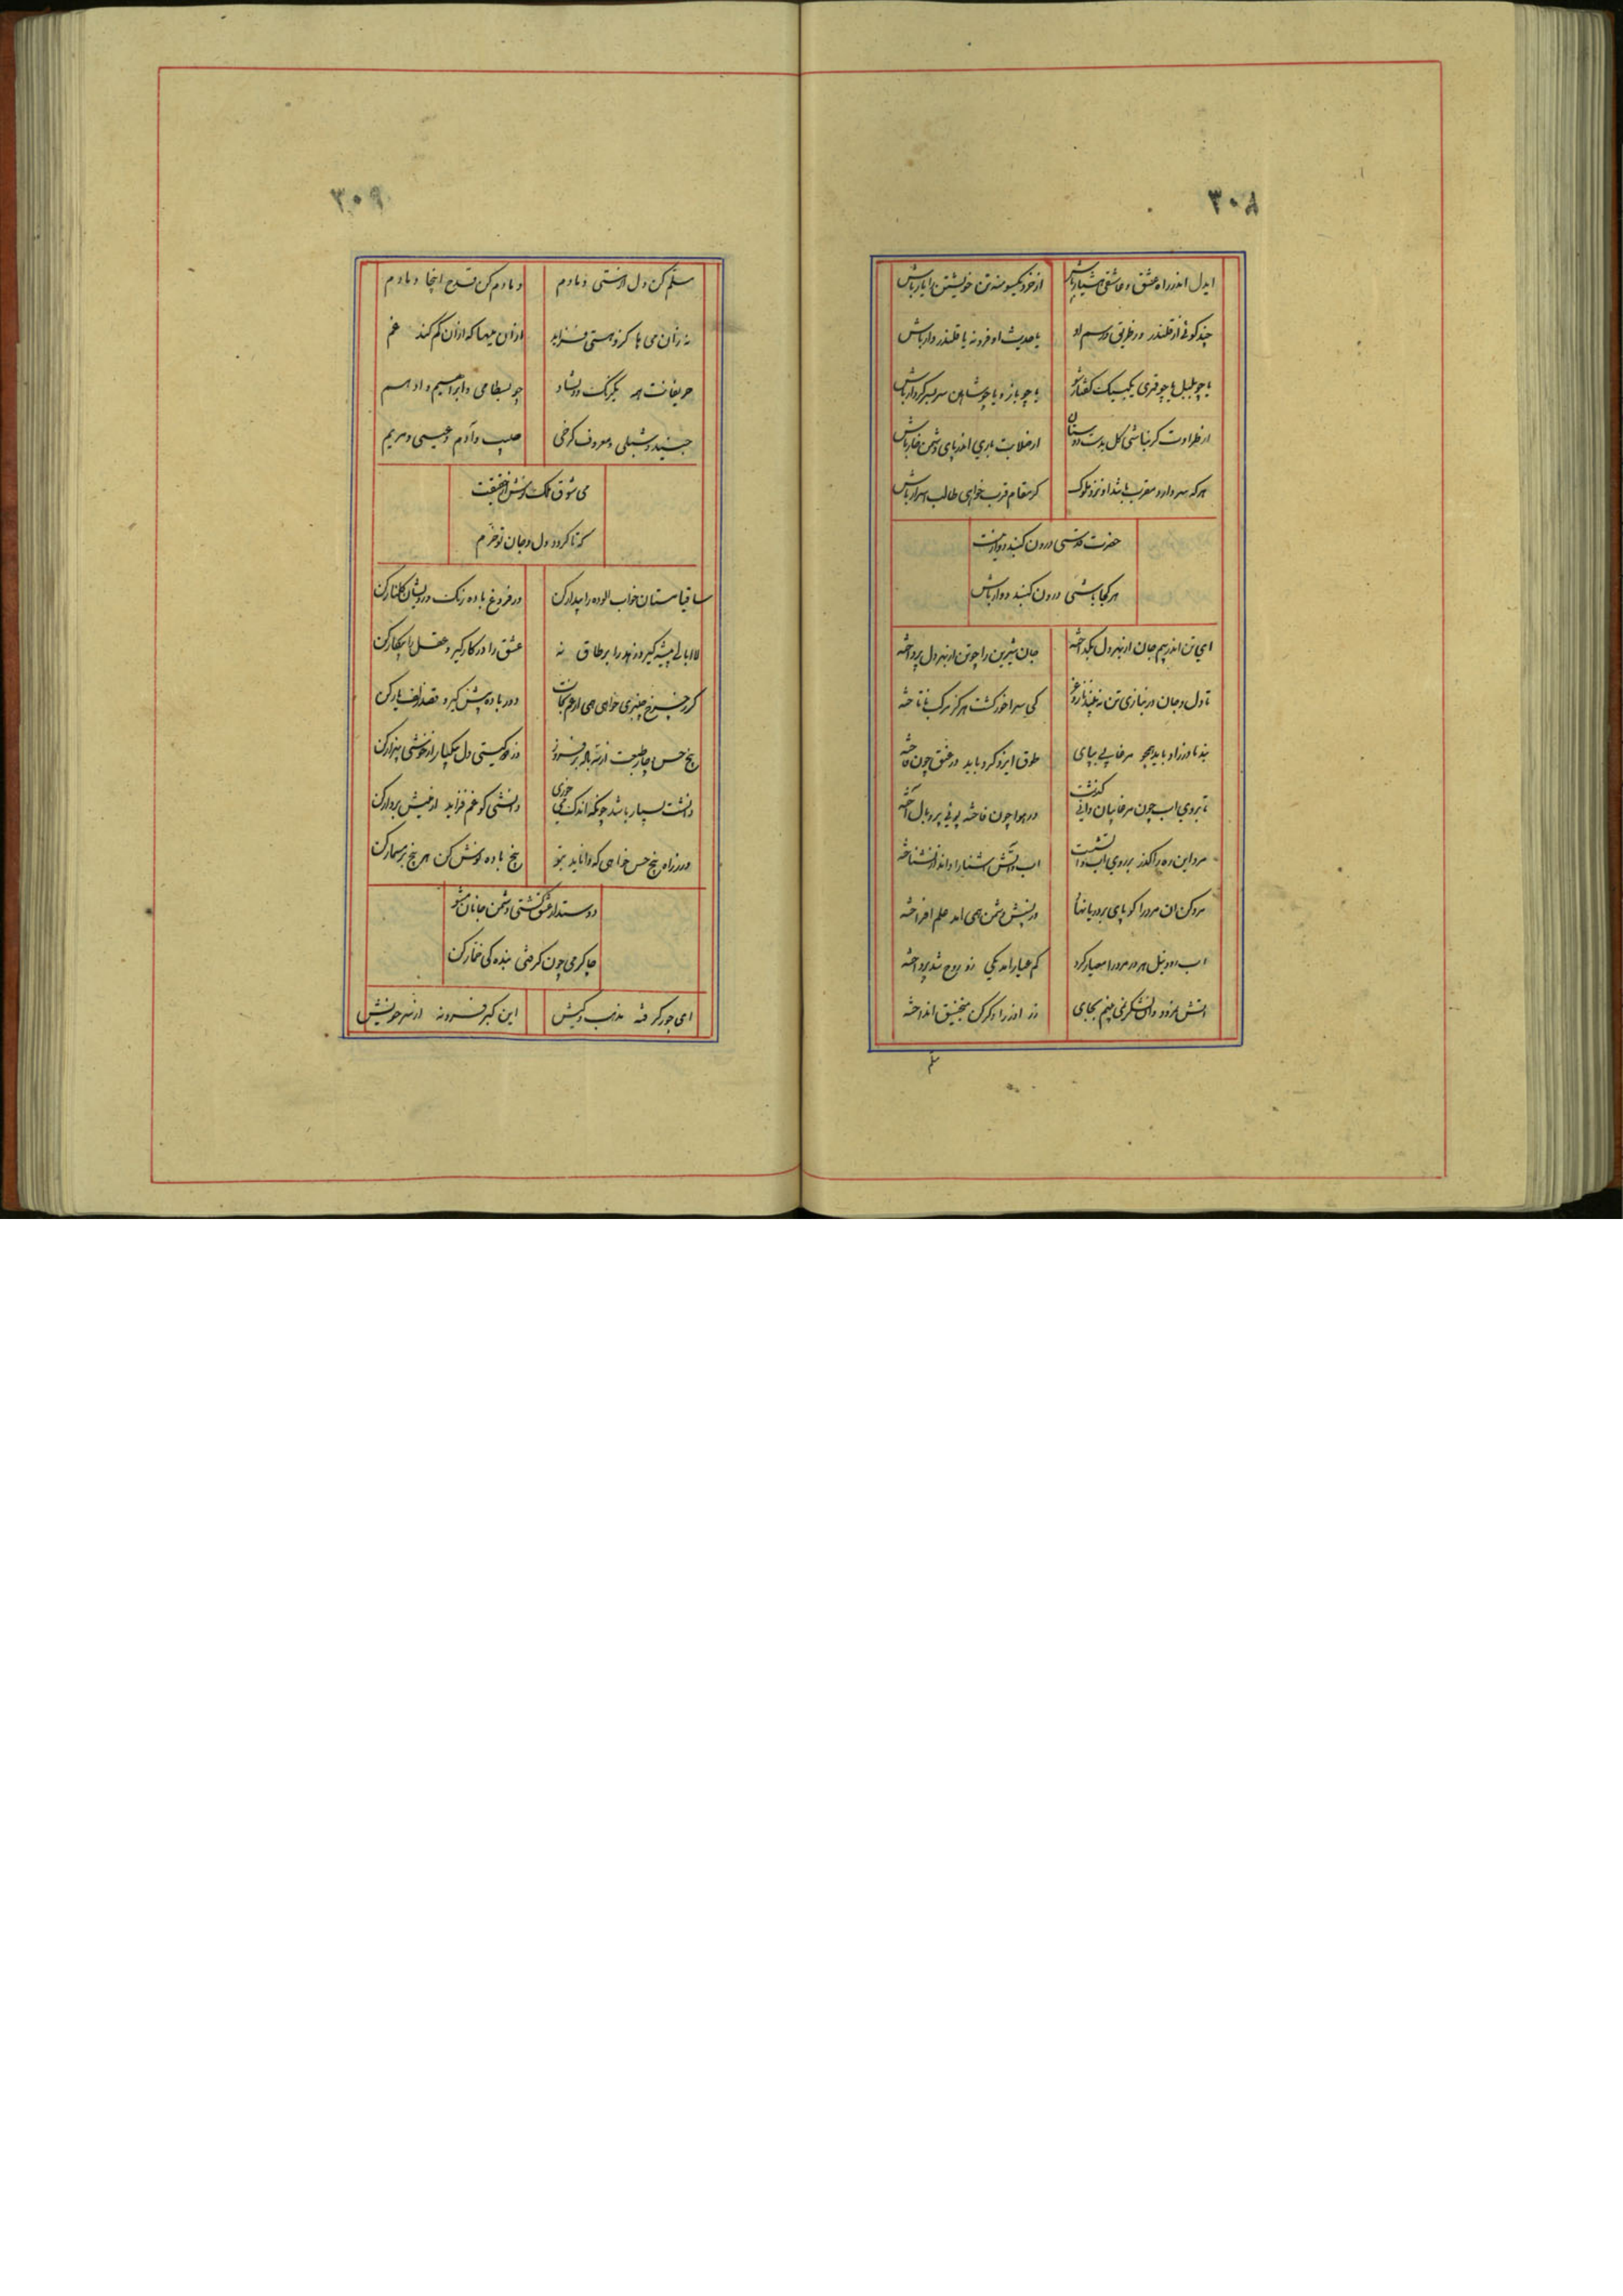 ۳۰۸
ایدل اندر راه عشق و عاشقی هشیار باش از خرد یکسو منه تن خویشتن را یار باش
چند گوئی از قلندر در طریق و رسم او یا حدیث او فرو نه یا قلندر وار باش
یا چو بلبل یا چو قمری یکسک گفتار شو یا چو باز و یا چو شاهین سربسر کردار باش
از طراوت گر نباشی گل بدست دوستان از صلابت باری اندر پای دشمن خار باش
هر که سر دارد مقرب باشد او نزد ملوک گر مقام قرب خواهی طالب اسرار باش
حضرت قدسی درون گنبد دوار نیست
هر کجا باشی درون گنبد دوار باش
ای تن اندر بیم جان از بهر دل بگداخته جان شیرین را چو تن از بهر دل پرداخته
تا دل و جان در نبازی تن نه بیند ناز و عز کی سرا خور گشت هرگز مرکب نا تاخته
بند مادرزاد باید همچو مرغابی بپای طوق ایزد کرد باید در عنق چون فاخته
تا بروی اب چون مرغابیان دانی گذشت در هوا چون فاخته پری پر و بال آخته
مرد این ره را گذر بر روی اب و اتشست اب و آتش آشنا را داند از نشناخته
مرد کن ان مرد را کو پای بر دریا نهاد در پیش دشمن همی اید علم افراخته
اب رود نیل هر دو مرد را معیار کرد کم عیار امد یکی زو روح شد پرداخته
اتش نمرود و ان لشکر نمی بینم بجای وز آزر را و گرگ منجنیق انداخته
مسلم
۳۰۹
مسلم کن دل از هستی دمادم دمادم کن قدح اینجا دمادم
نه زان می ها کزو هستی فزاید ازان میها که از آن کم کند غم
حریفانت همه یکرنک و دلشاد چو بسطامی و ابراهیم و ادهم
جنید و شبلی و معروف کرخی حبیب و آدم و عیسی و مریم
می شوق ملک نوش از حقیقت
که تا گردد دل و جان تو خرم
ساقیا مستان خواب الوده را بیدار کن در فروغ باده رنگ رویشان گلنار کن
لاابالی پیشه گیر و زهد را بر طاق نه عشق را در کار گیر و عقل را بیکار کن
گر ز چرخ چنبری خواهی همی از غم نجات دور باده پیش گیر و قصد زلف یار کن
پنج حس و چار طبعت از نه باله بر فروز وز دو گیتی دل بیکبار از خوشی بیزار کن
دانشت بسیار باشد چونکه اندک می خوری دانشی کو غم فزاید از میش بردار کن
در ز راه پنج حس خواهی که دانا بد بتو پنج باده نوش کن هر پنج بر مسمار کن
دوستدار عشق گشتی دشمن جانان مشو
چاکر می چون گرفتی بنده گی خمار کن
ای جور گرفته مذهب و کیش این کبر فرو نه از سر خویش